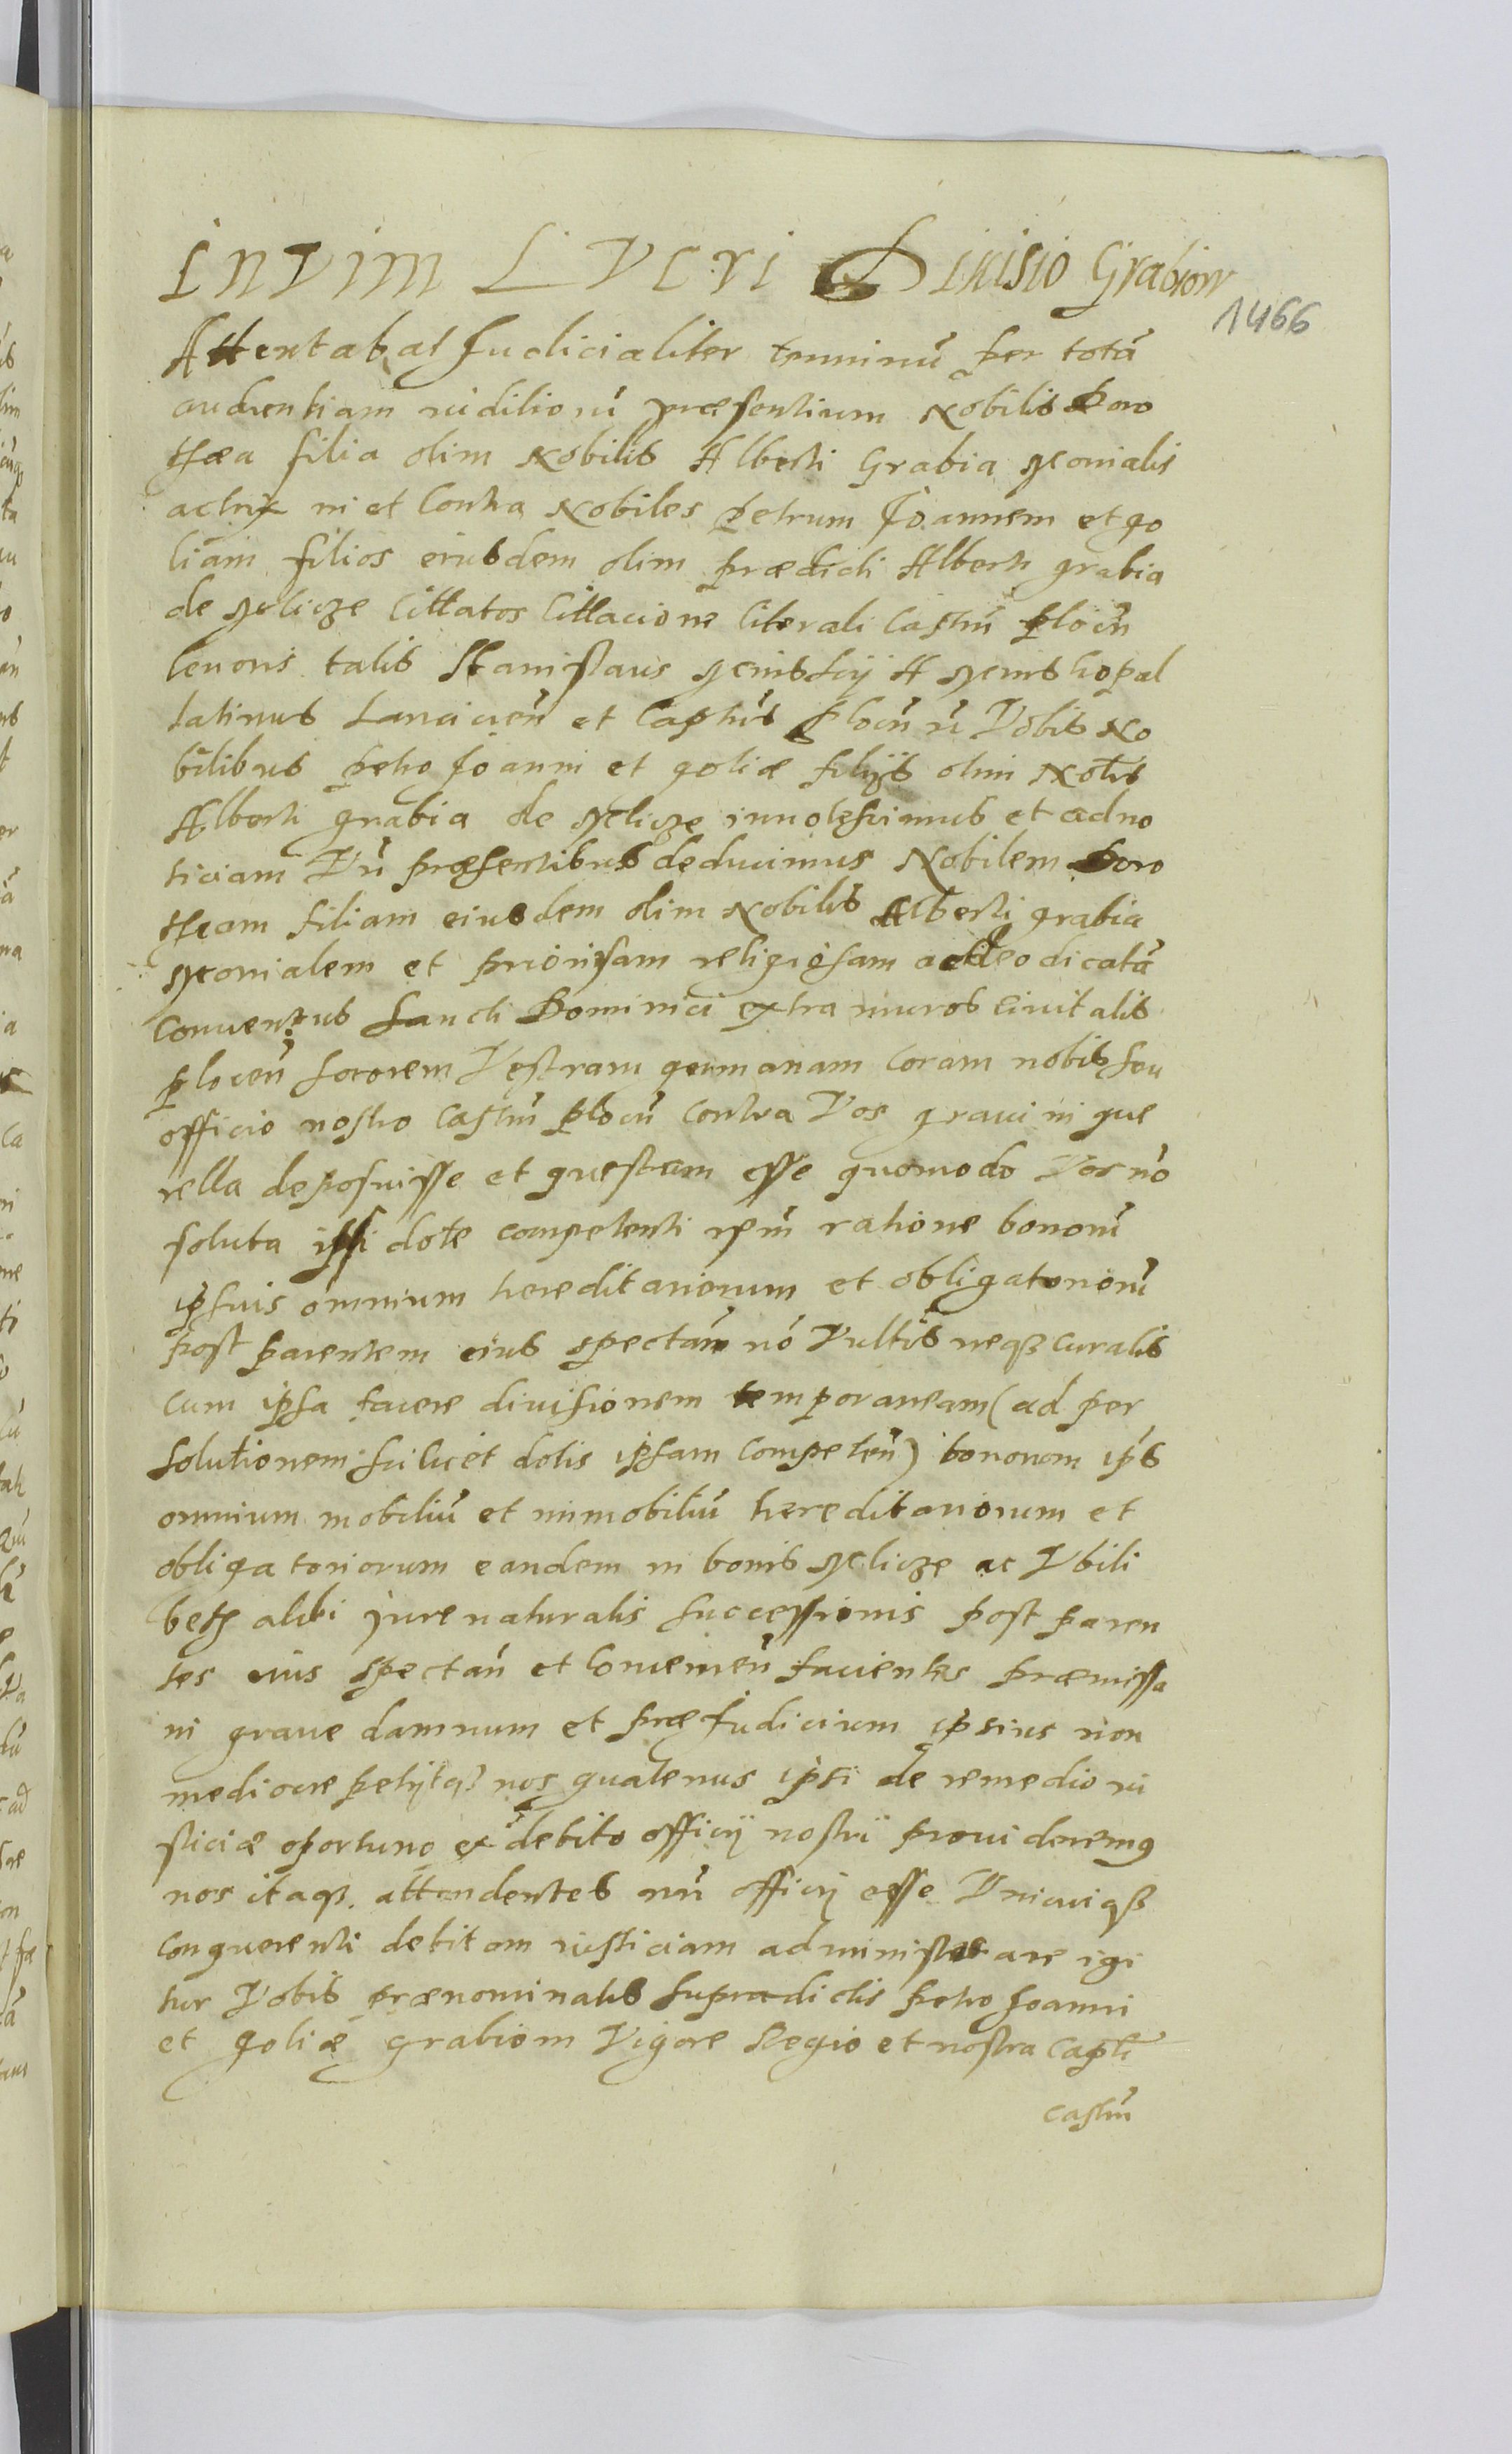 In Vim Lucri Divisio Grabiow
1466
Attentabat Judicialiter terminū per totā
audientiam iuditiorū præsentium Nobilis Doro
thæa filia olim Nobilis Alberti Grabia Monialis
actrix in et Contra Nobiles Petrum Joannem et Go
liam filios eiusdem olim prædicti Alberti grabia
de Milicze Cittatos Cittacione literali Castrn̄ plocn̄
tenoris talis Stanislaus Mensky A Mensko pal
latinus Lancicien̄ et Captn̄s Plocn̄ n̄ Vobis No
bilibus Petro Joanni et goliæ filijs olim Nolis
Alberti grabia de Milicze innotescimus et ad no
ticiam Vn̄ præsentibus deducimus Nobilem Doro
theam filiam eiusdem olim Nobilis Alberti grabia
Monialem et priorissam religiosam ac deo dicatā
Conuentus Sancti Dominici extra muros Ciuitatis
plocen̄ sororem Vestram germanam Coram nobis seu
officio nostro Castrn̄ plocn̄ Contra Vos graui in que
rella deposuisse et questam esse quomodo Vos nō
soluta ipsi dote competenti rem̄ ratione bonorū
ipsius omnium hereditariorum et obligatoriorū
post parentem eius spectān nō Vultis neqꝫ curatis
cum ipsa facere diuisionem temporaneam (ad per
solutionem scilicet dotis ipsam Competen̄) bonorum ips̄
omnium mobiliū et immobiliū hereditariorum et
obligatoriorum eandem in bonis Milicze ac Vbili
bet alibi jure naturalis successionis post paren
tes eius spectān et Conuenien̄ facientes præmissa
in graue damnum et præjudicium ipsius non
mediocre petijtqꝫ nos quatenus ipsi de remedio iu
sticiæ oportuno ex debito officij nostri prouideremꝰ
nos itaqꝫ attendentes nn̄ officij esse Vnicuiqꝫ
conquerenti debitam iusticiam administrare igi
tur Vobis prænominatis supradictis petro Joanni
et goliæ grabiom Vigore Regio et nostra Captli
castrn̄